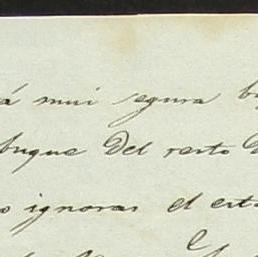 á mui segura b
buque del resto d
o ignorar el est